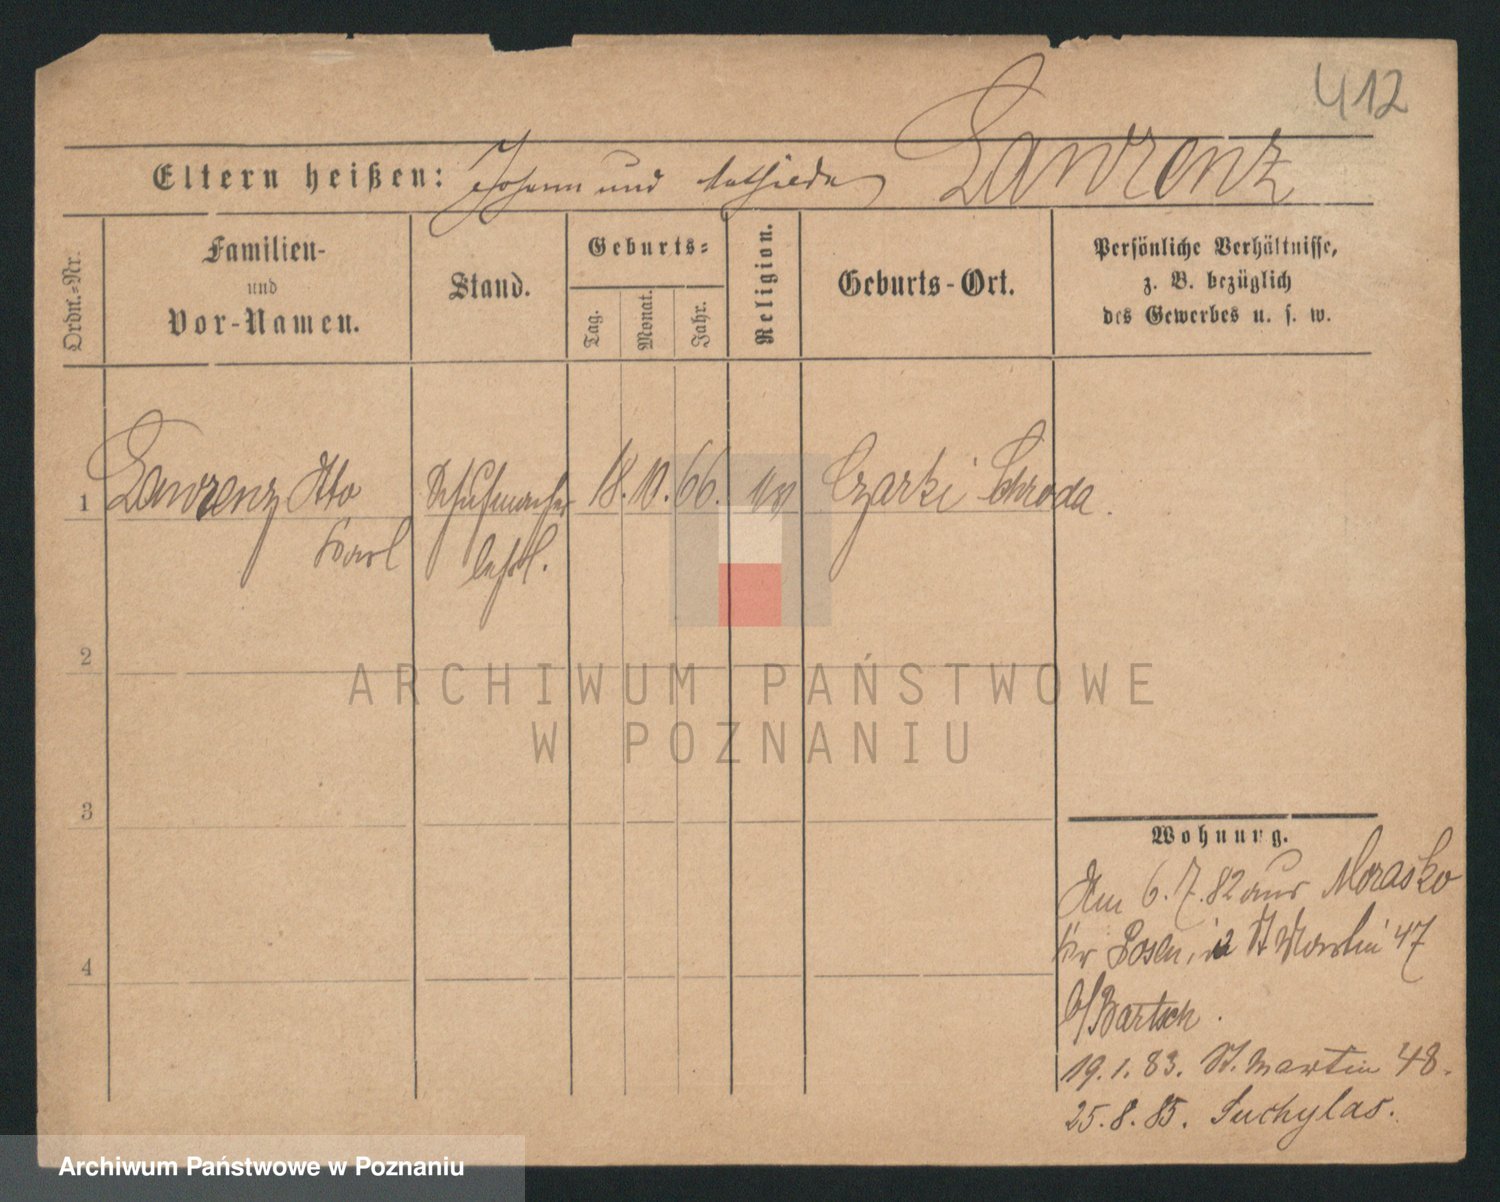 412
Eltern heißen: Johann und Mathilde Lawrenz
Ordn.-Nr.
Familien-
und
Vor-Namen.
Stand.
Geburts-
Tag.
Monat.
Jahr.
Religion.
Geburts-Ort.
Persönliche Verhältnisse,
z. B. bezüglich
des Gewerbes u. s. w.
1 Lawrenz Otto Schuhmacher 18. 10. 66. Czarki Schroda.
Karl lehrl.
2
3
4
ARCHIWUM PAŃSTWOWE
W POZNANIU
Wohnung.
Am 6.7.82 aus Morasko
Kr Posen, St Martin 47
b/Bartsch.
19.1.83. St. Martin 48.
25.8.85. Suchylas.
Archiwum Państwowe w Poznaniu